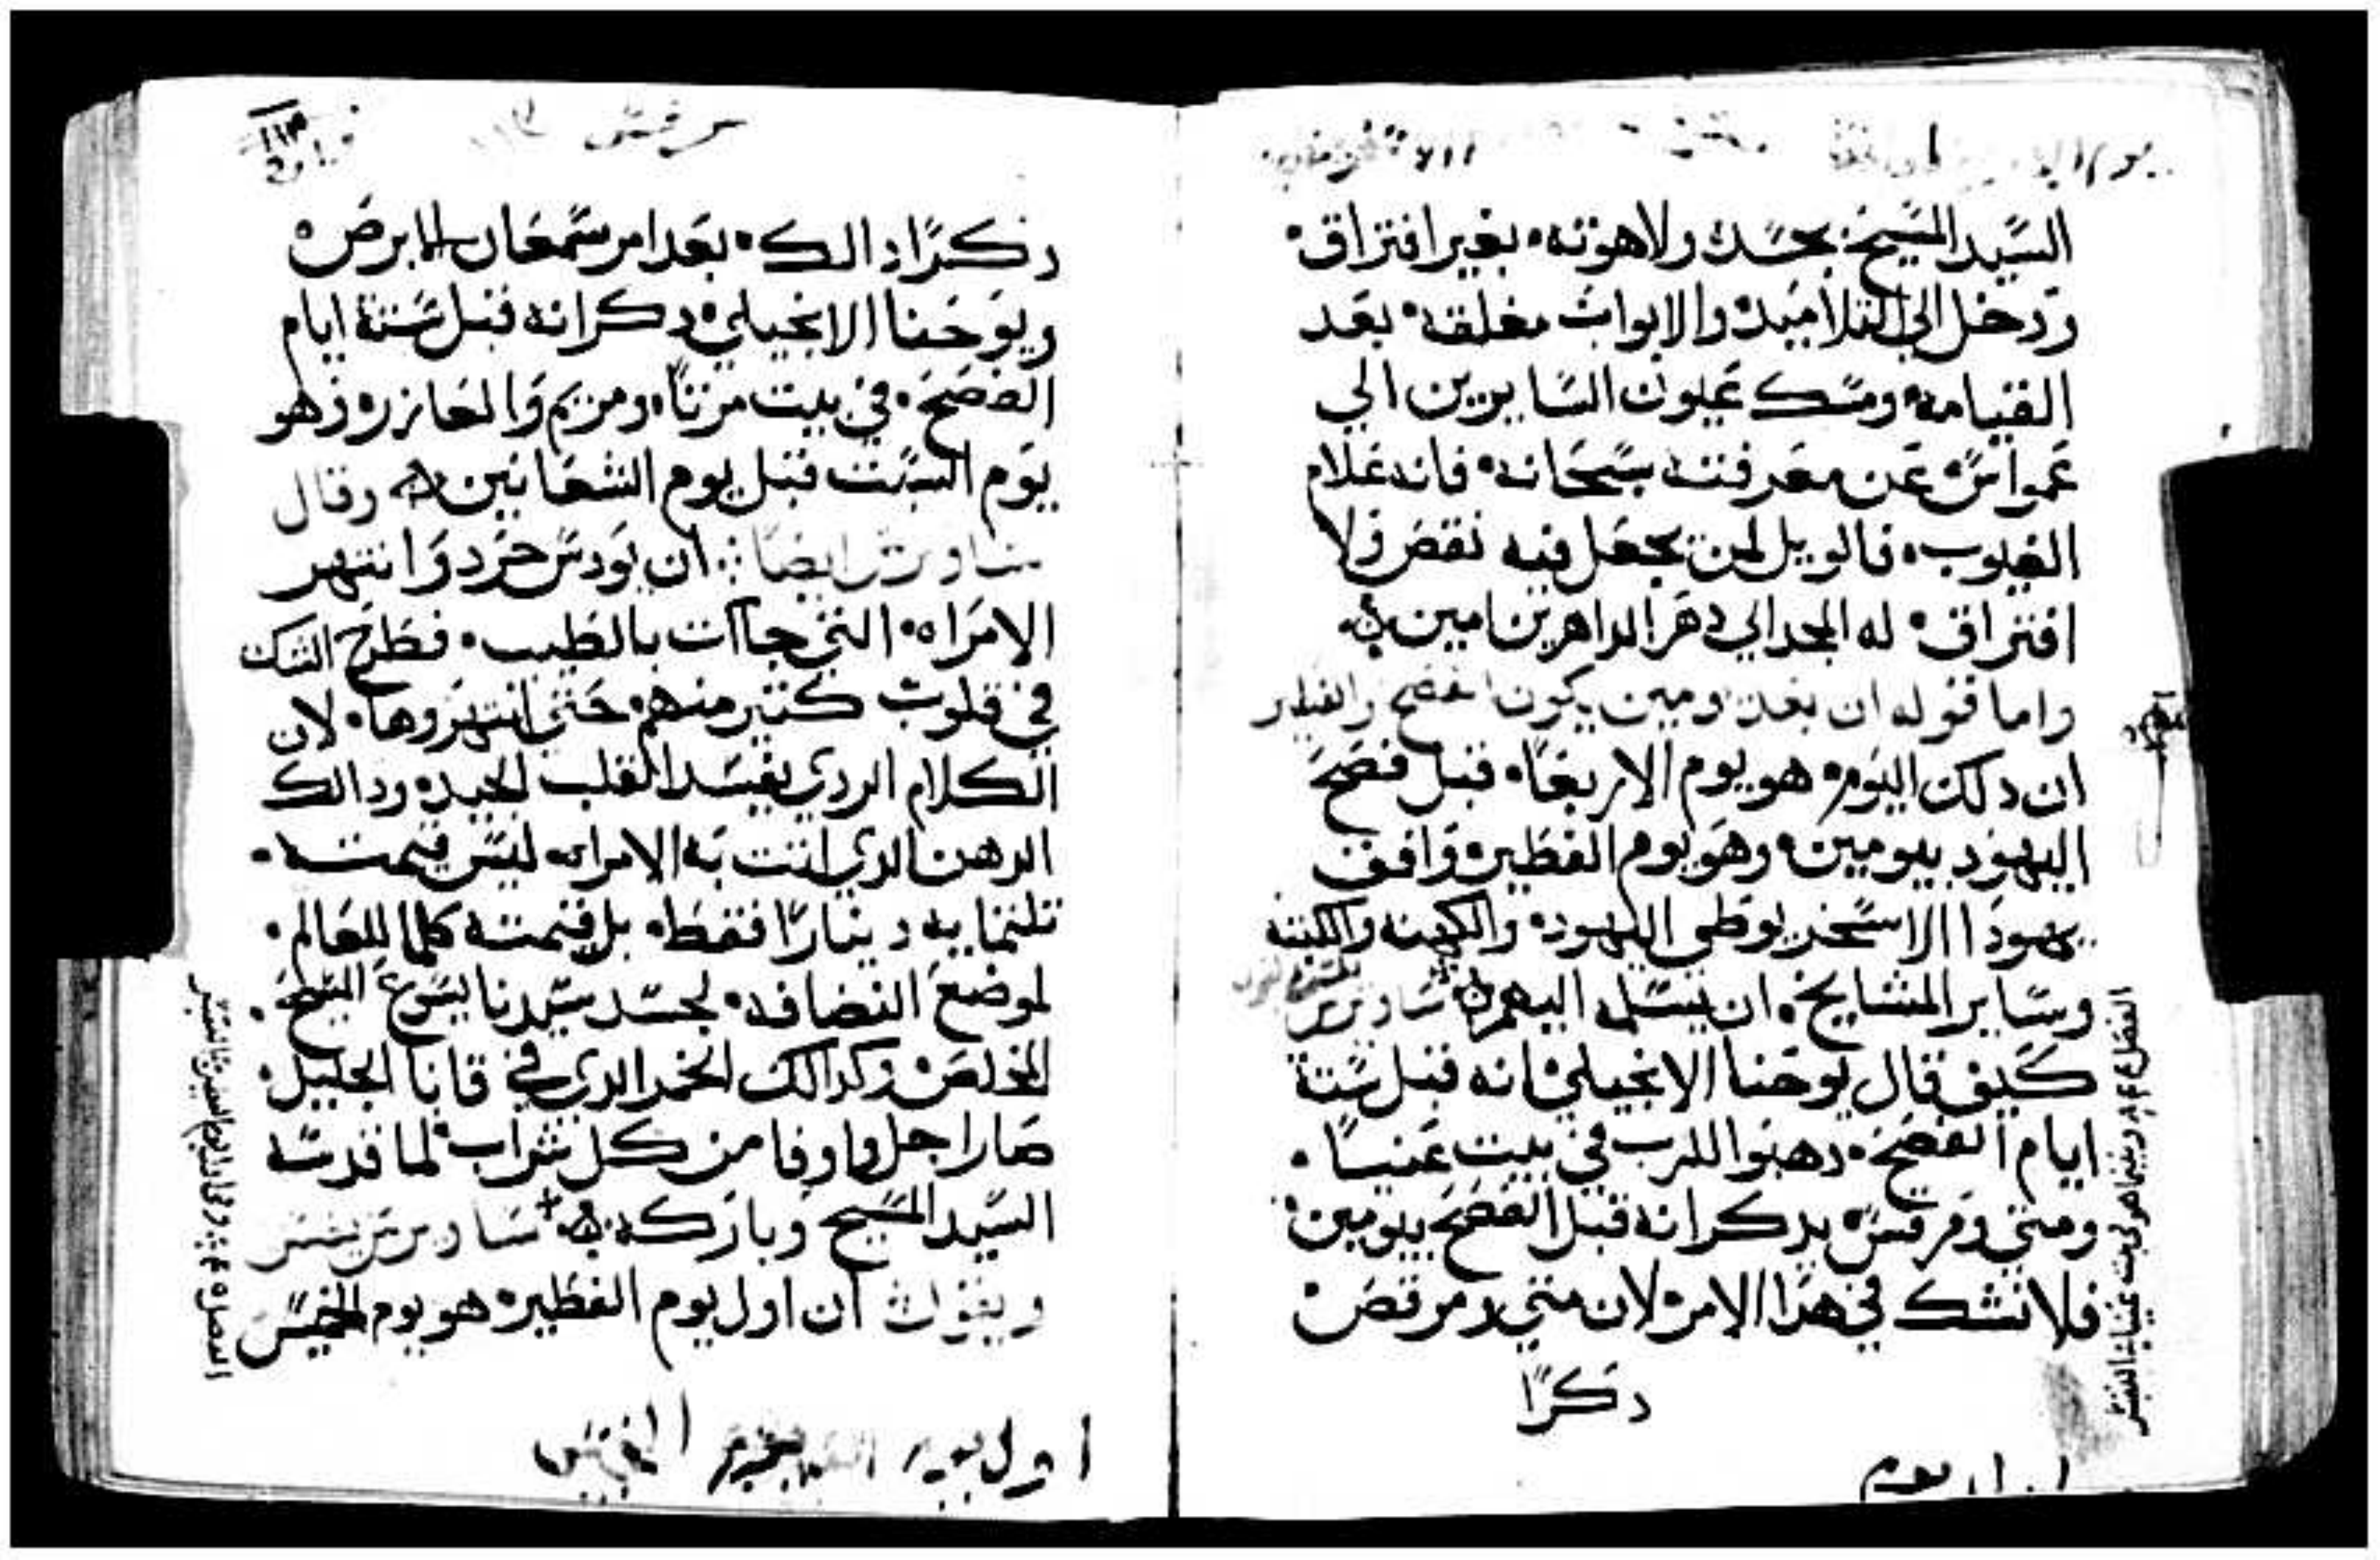 السيد المسيح بجسده ولاهوته بغير افتراق
ودخل الي التلاميد والابواب مغلقه بعد
القيامه ومسك عيون السايرين الي
عمواس عن معرفته سبحانه فانه علام
الغيوب فالويل لمن يجعل فيه نقص ولا
افتراق له المجد الي دهر الداهرين امين
واما قوله ان بعد يومين يكون الفصح والفطير
ان دلك اليوم هو يوم الاربعا قبل فصح
اليهود بيومين وهو يوم الفطير وافق
يهودا الاسخريوطي اليهود والكهنه والكتبه
وساير المشايخ ان يسلمه اليهم ساويرس
كيف قال يوحنا الانجيلي انه قبل ستة
ايام الفصح دهنوا الرب في بيت عنيا
ومتي ومرقس يدكرانه قبل الفصح بيومين
فلا تشك في هدا الامر لان متي ومرقص
دكرا
يوم
دكرا دالك بعد امر سمعان الابرص
ويوحنا الانجيلي دكر انه قبل ستة ايام
الفصح في بيت مرتا ومريم والعازر وهو
يوم السبت قبل يوم الشعانين وقال
ساويرس ايضا ان يودس حرد وانتهر
الامراه التي جاات بالطيب فطرح الشك
في قلوب كتير منهم حتي انتهروها لان
الكلام الردي يفسد القلب الجيد ودالك
الدهن الدي اتت به الامراه ليس قيمته
تلتمايه دينارا فقط بل قيمته كلما للعالم
لموضع انضافه لجسد سيدنا يسوع المسيح
المخلص وكدالك الخمر الدي في قانا الجليل
صار اجل واوفا من كل شراب لما قدسه
السيد المسيح وباركه ساويرس يفسر
ويقول ان اول يوم الفطير هو يوم الخميس
اول يوم الخميس